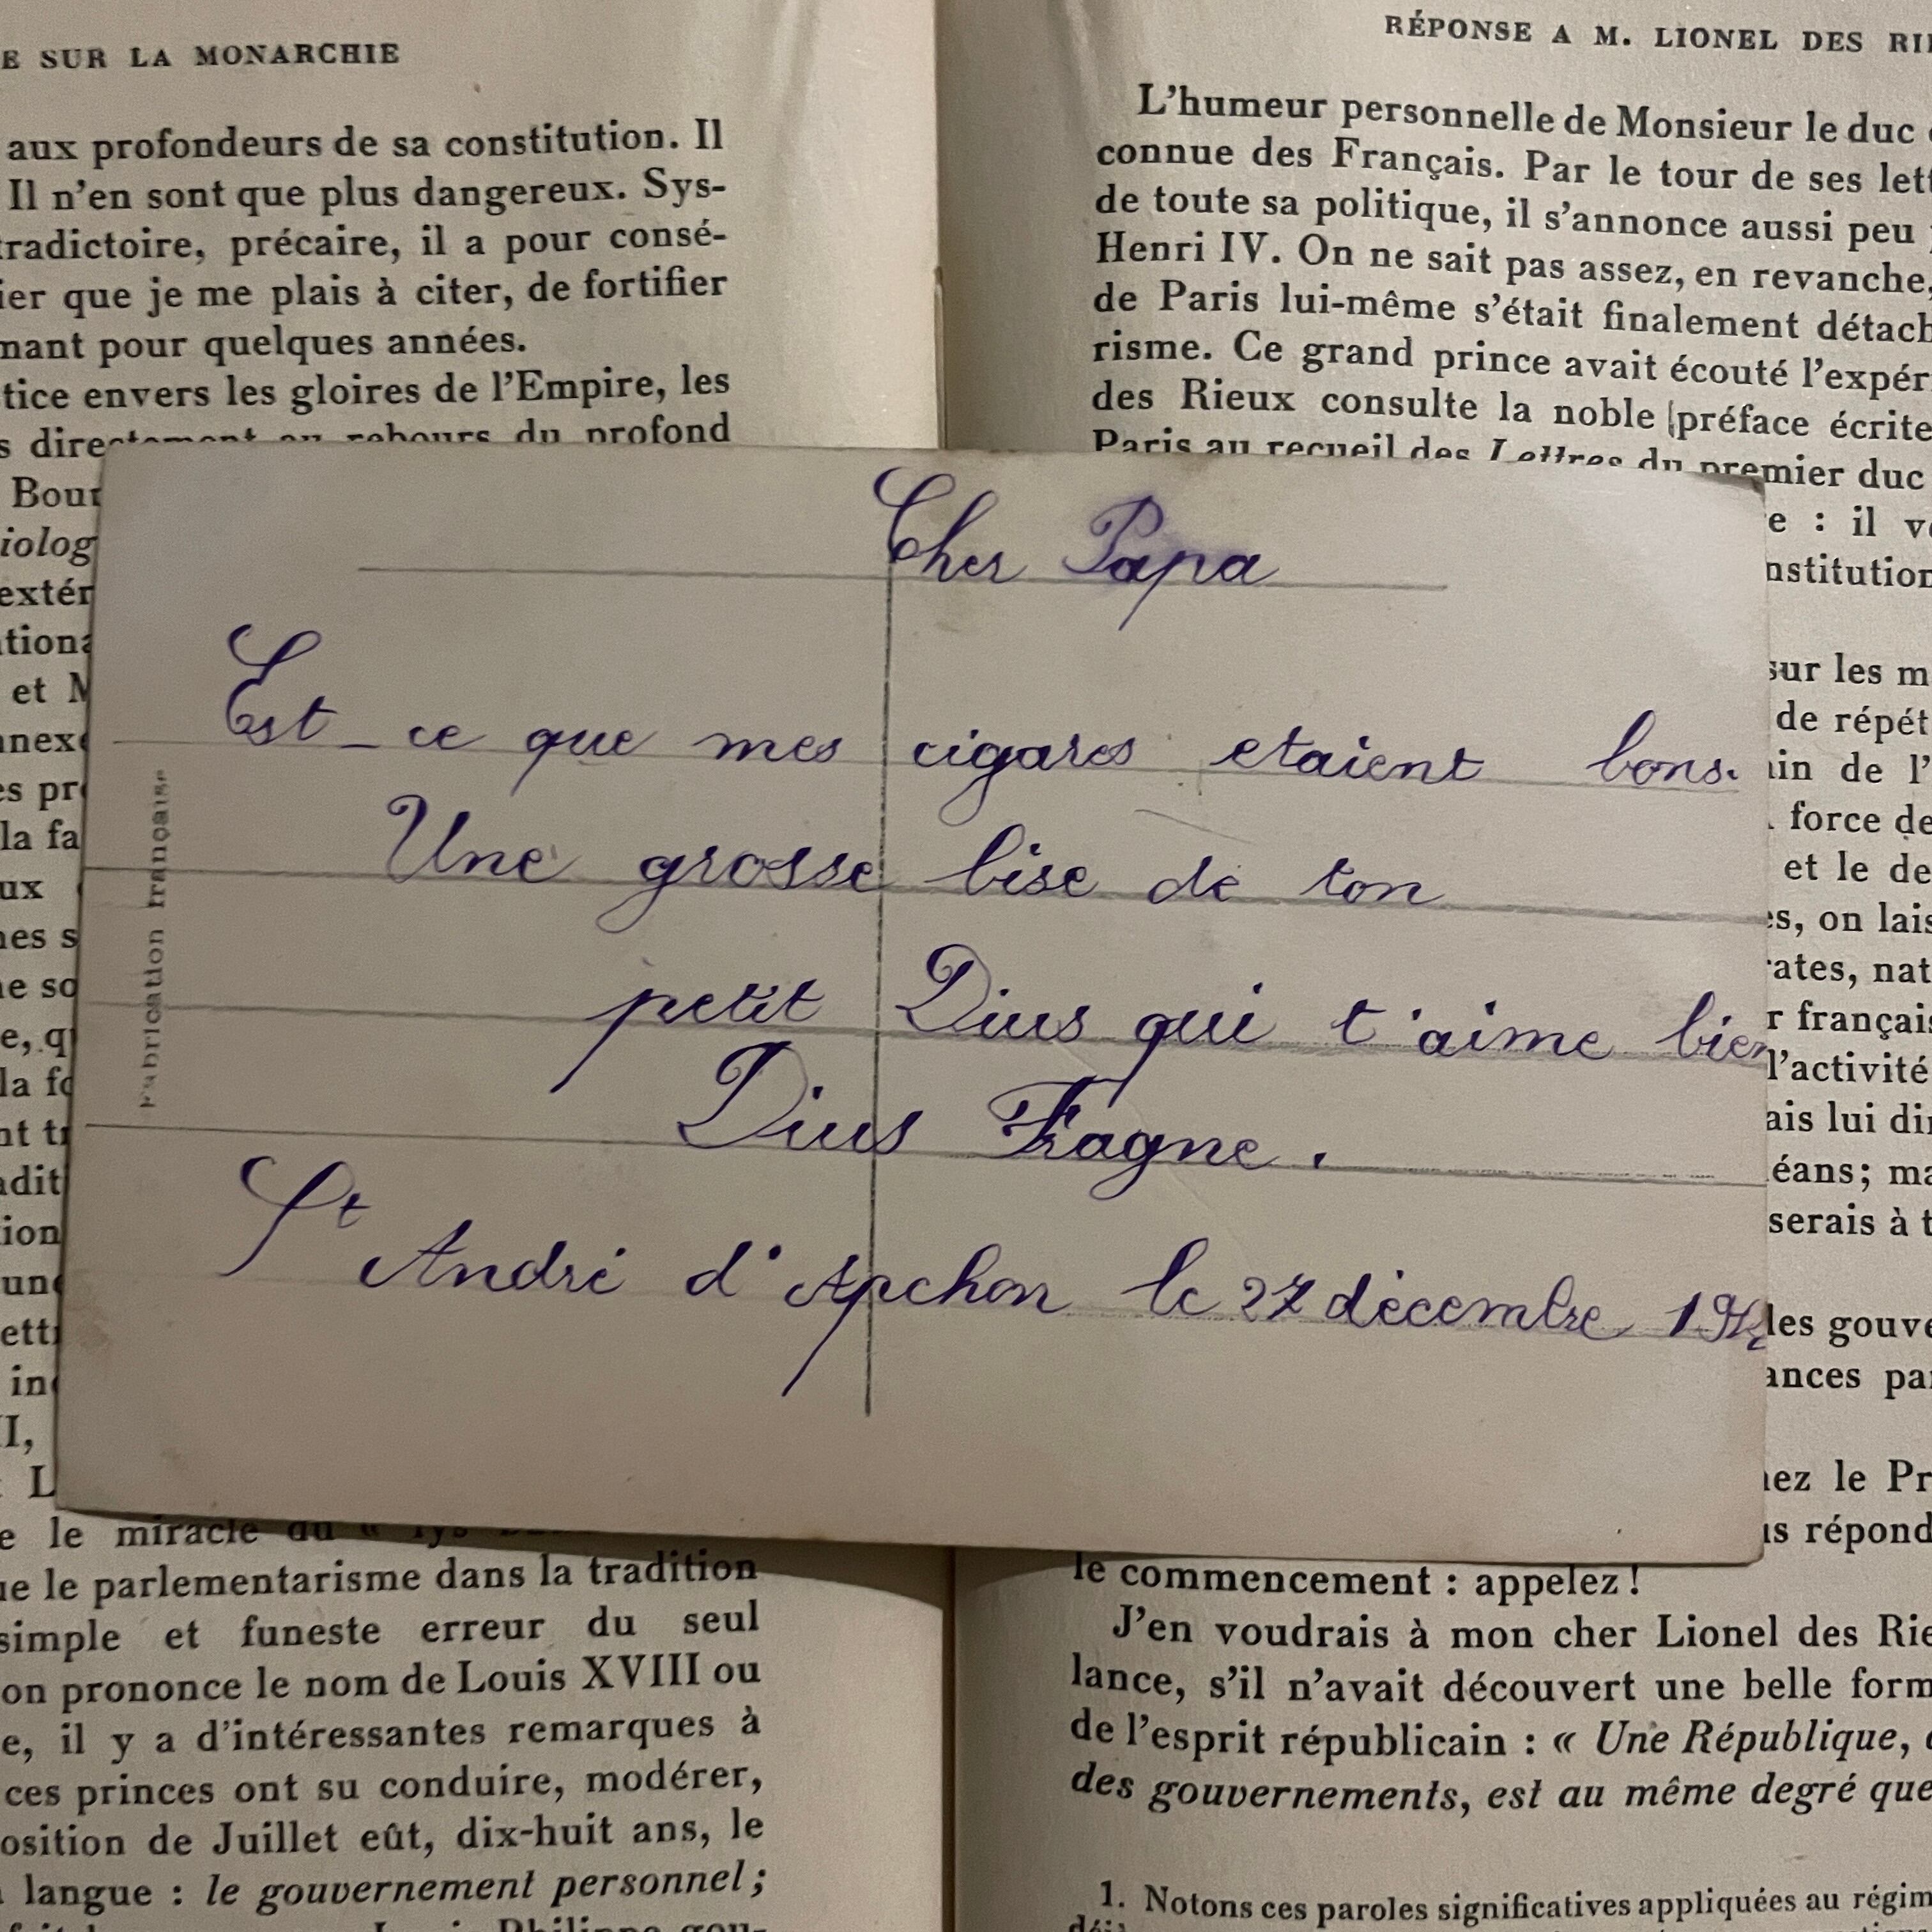 E SUR LA MONARCHIE
aux profondeurs de sa constitution. Il
Il n'en sont que plus dangereux. Sys-
tradictoire, précaire, il a pour consé-
ier que je me plais à citer, de fortifier
mant pour quelques années.
tice envers les gloires de l'Empire, les
s directement au rebours du profond
Bour
iolog
extér
ationa
et M
nnexe
es pr
la fa
ux
nes s
ne so
e, q
la fo
nt tr
adit
tion
une
ettr
in
II,
L
e le miracle du «
ue le parlementarisme dans la tradition
simple et funeste erreur du seul
on prononce le nom de Louis XVIII ou
e, il y a d'intéressantes remarques à
ces princes ont su conduire, modérer,
position de Juillet eût, dix-huit ans, le
langue : le gouvernement personnel;
Philippe gou-
Cher Papa
Est-ce que mes cigares etaient bons.
Une grosse bise de ton
petit Dius qui t'aime bien
Dius Fragne.
St André d'Apchon le 27 décembre
Fabrication française
RÉPONSE A M. LIONEL DES RI
L'humeur personnelle de Monsieur le duc
connue des Français. Par le tour de ses lett
de toute sa politique, il s'annonce aussi peu
Henri IV. On ne sait pas assez, en revanche,
de Paris lui-même s'était finalement détach
risme. Ce grand prince avait écouté l'expér
des Rieux consulte la noble préface écrite
Paris au recueil des Lettres du premier duc
e : il v
nstitution
sur les m
de répét
in de l'
force de
et le de
es, on lais
rates, nat
r français
l'activité
ais lui dir
éans; ma
serais à t
les gouve
ances pa
nez le Pr
us répond
le commencement : appelez!
J'en voudrais à mon cher Lionel des Rie
lance, s'il n'avait découvert une belle form
de l'esprit républicain : « Une République,
des gouvernements, est au même degré que
1. Notons ces paroles significatives appliquées au régim
déjà